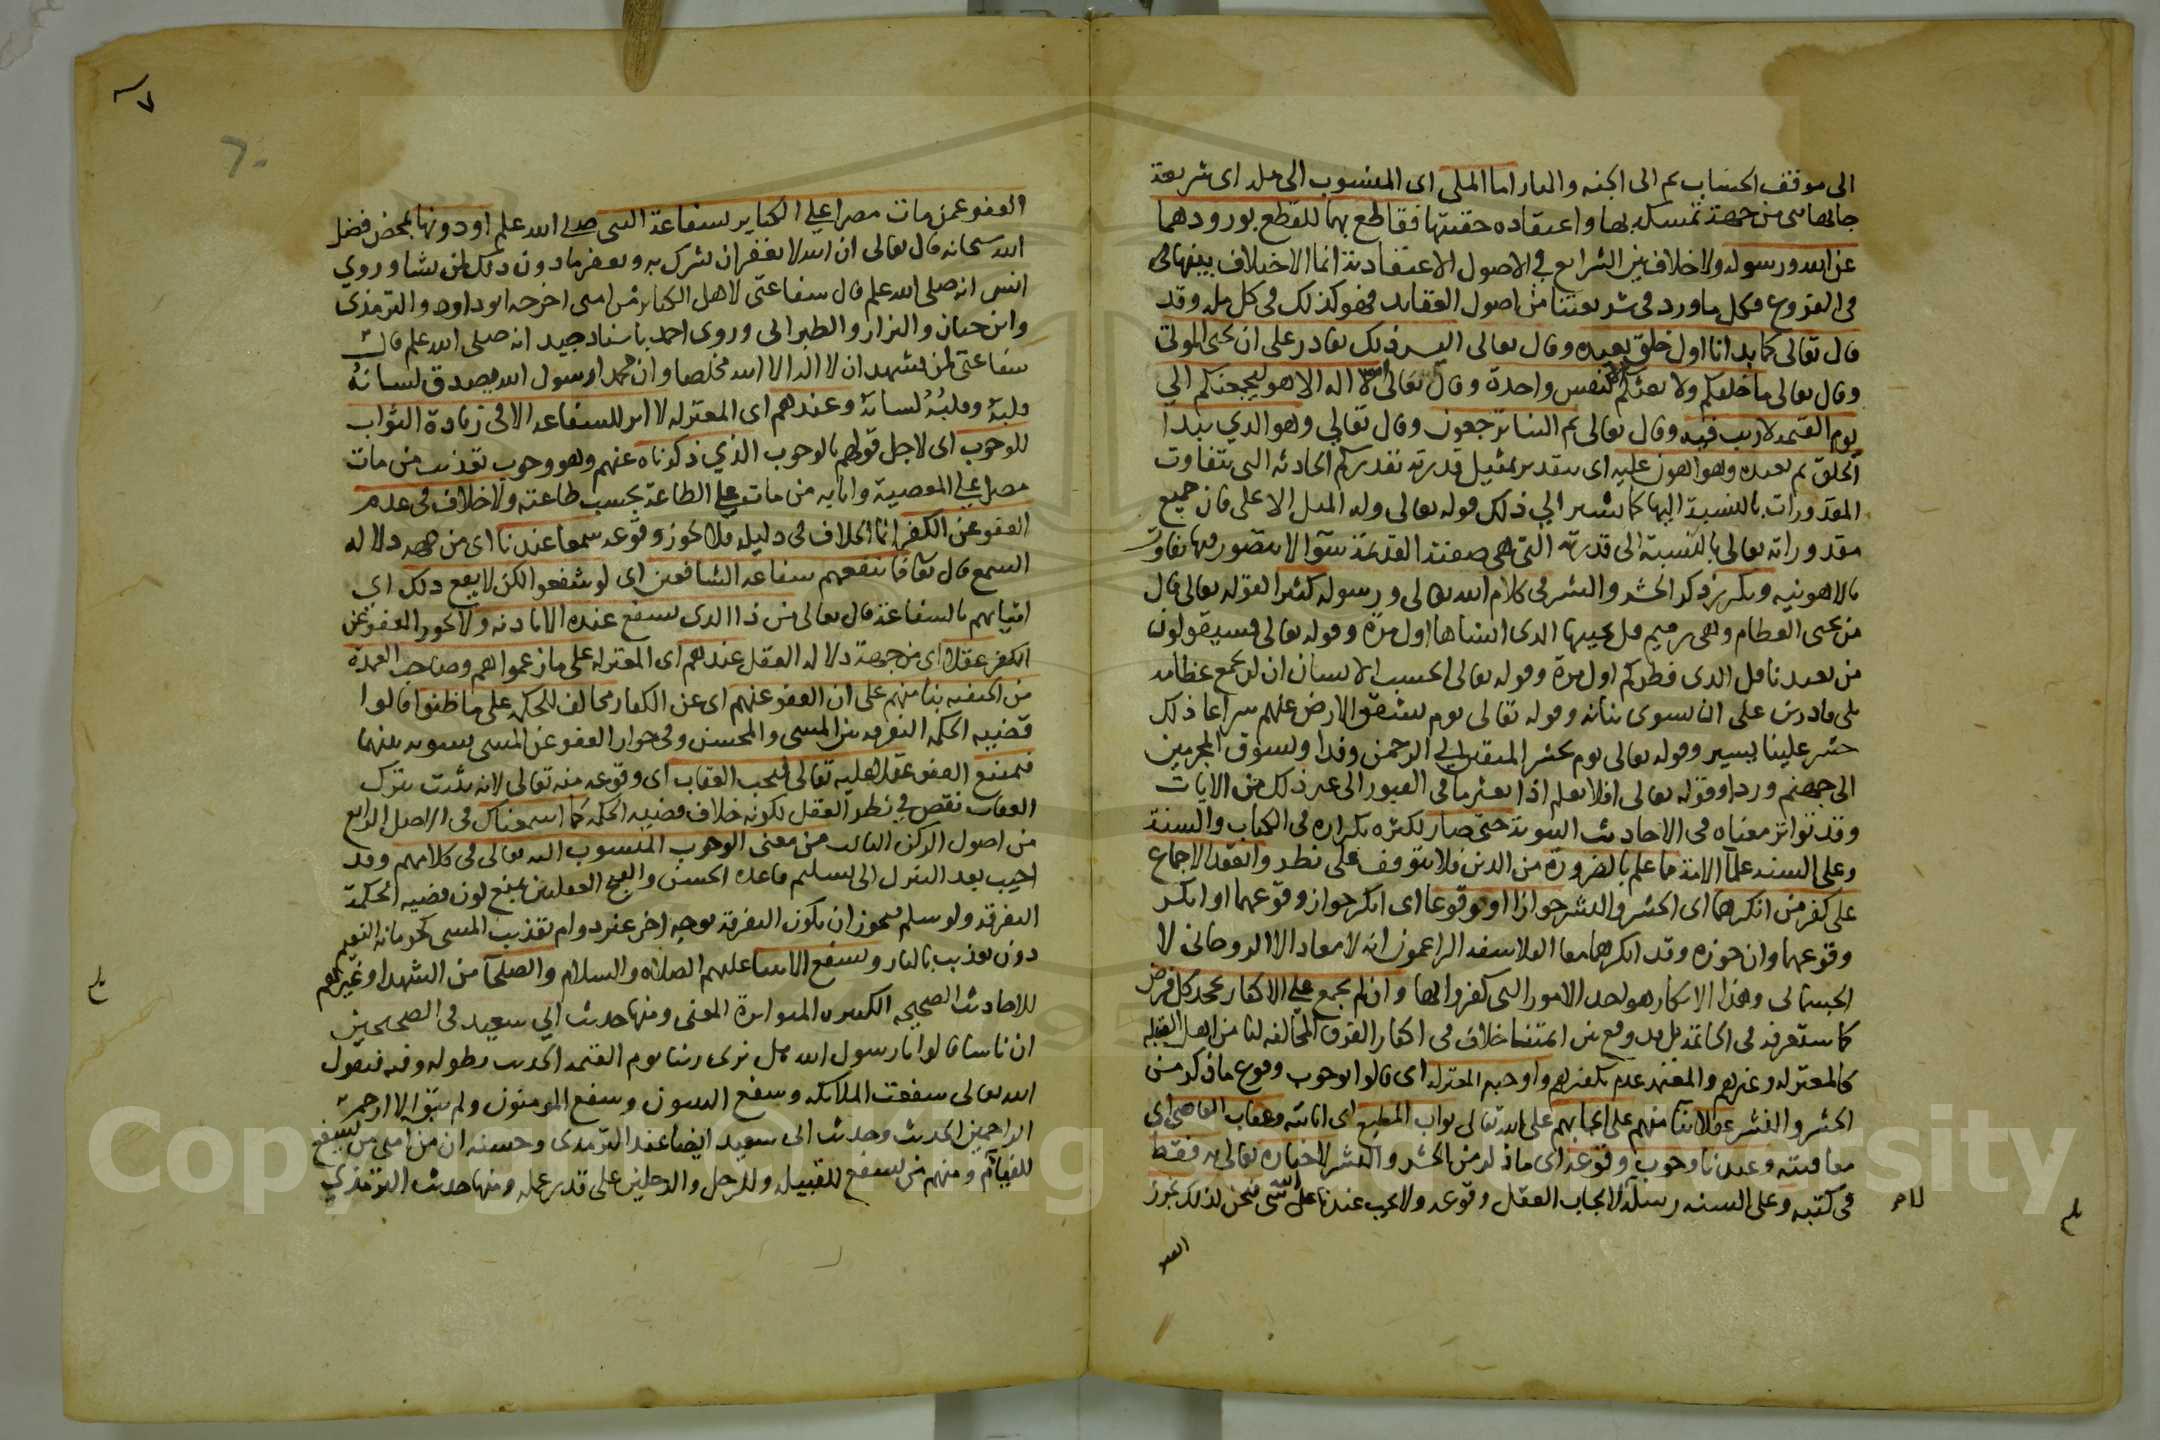 الى موقف الحساب ثم الى الجنه والنار اما الملى اى المنسوب الى مله اى شريعة
جا بها نبى من جهة تمسكه بها واعتقاده حقيتها فقاطع بهما للقطع بورودهما
عن الله ورسوله ولا خلاف بين الشرايع في الاصول الاعتقادية انما الاختلاف بينها فى
فى الفروع فكل ما ورد فى شريعتنا من اصول العقايد فهو كذلك فى كل مله وقد
قال تعالى كما بدانا اول خلق نعيده وقال تعالى اليس ذلك بقادر على ان يحيى الموتى
وقال تعالى ما خلقكم ولا بعثكم الا كنفس واحدة وقال تعالى الله لا اله الا هو ليجمعنكم الي
يوم القيمه لا ريب فيه وقال تعالى ثم الينا ترجعون وقال تعالي وهو الذي يبدا
الخلق ثم يعيده وهو اهون عليه اى بتقدير تمثيل قدرته بقدركم الحادثه التى تتفاوت
المقدورات بالنسبة اليها كما يشير الي ذلك قوله تعالى وله المثل الاعلى فان جميع
مقدوراته تعالى بالنسبة الى قدرته التى هى صفته القديمة سوآ لا يتصور فيها تفاوت
بالاهونيه وتكرر ذكر الحشر والنشر فى كلام الله تعالى ورسوله كثيرا لقوله تعالى قال
من يحيى العظام وهى رميم قل يحييها الذى انشاها اول مرة وقوله تعالى فسيقولون
من يعيدنا قل الذى فطركم اول مرة وقوله تعالى ايحسب الانسان ان لن نجمع عظامه
بلى قادرين على ان نسوى بنانه وقوله تعالى يوم تشقق الارض عنهم سراعا ذلك
حشر علينا يسير وقوله تعالى يوم نحشر المتقين الي الرحمن وفدا ونسوق المجرمين
الى جهنم وردا وقوله تعالى افلا يعلم اذا بعثر ما فى القبور الى غير ذلك من الايات
وقد تواتر معناه فى الاحاديث النبوية حتى صار لكثره تكراره فى الكتاب والسنة
وعلى السنه علمآ الامة مما علم بالضرورة من الدين فلا يتوقف على نظر وانعقد الاجماع
على كفر من انكرهما اى الحشر والنشر جوازا او وقوعا اى انكر جواز وقوعهما او انكر
وقوعهما وان جوزه وقد انكرهما معا الفلاسفه الزاعمون انه لا معاد الا الروحانى لا
الجسمانى وهذا الانكار هو احد الامور التى كفروا بها وان لم يجمع علي الاكفار بجحد كل فرض
كما ستعرفه فى الخاتمة بل قد وقع بين ايمتنا خلاف فى اكفار الفرق المخالفه لنا من اهل القبله
كالمعتزله وغيرهم والمعتمد عدم تكفيرهم واوجبه المعتزله اى قالوا بوجوب وقوع ما ذكر من
الحشر والنشر عقلا بنآ منهم على ايجابهم على الله تعالى ثواب المطيع اى اثابته وعقاب العاصى اى
معاقبته وعندنا وجوب وقوعه اى ما ذكر من الحشر والنشر لاخباره تعالى به فقط
فى كتبه وعلى السنه رسله لا لايجاب العقل وقوعه ولا يجب عندنا على الله شى فنحن لذلك نجوز
العفو
العفو عمن مات مصرا علي الكباير بشفاعة النبى صلى الله علم او دونها بمحض فضل
الله سبحانه قال تعالى ان الله لا يغفر ان يشرك به ويغفر ما دون ذلك لمن يشا وروي
انس انه صلى الله علم قال شفاعتى لاهل الكباير من امتى اخرجه ابو داود والترمذى
وابن حبان والبزار والطبرانى وروى احمد باسناد جيد انه صلى الله علم قال
شفاعتى لمن يشهد ان لا اله الا الله مخلصا وان محمدا رسول الله يصدق لسانهُ
قلبهُ وقلبُهُ لسانهُ وعندهم اى المعتزله لا اثر للشفاعه الا فى زيادة الثواب
للوجوب اى لاجل قولهم بالوجوب الذي ذكرناه عنهم وهو وجوب تعذيب من مات
مصرا علي المعصية واثابه من مات علي الطاعة بحسب طاعته ولا خلاف فى عدم
العفو عن الكفر انما الخلاف فى دليله فلا يجوز وقوعه سمعا عندنا اى من جهه دلاله
السمع قال تعالى فما تنفعهم شفاعه الشافعين اى لو شفعوا لكن لا يقع ذلك اي
اتيانهم بالشفاعة قال تعالى من ذا الذى يشفع عنده الا باذنه ولا يجوز العفو عن
الكفر عقلا اى من جهة دلاله العقل عندهم اى المعتزله على ما زعموا هم وصاحب العمدة
من الحنفيه بنا منهم على ان العفو عنهم اى عن الكفار مخالف للحكمه على ما ظنوا قالوا
قضيه الحكمه التفرقه بين المسى والمحسن وفى جواز العفو عن المسى تسويه بينهما
فيمتنع العفو عقلا عليه تعالى فيجب العقاب اى وقوعه منه تعالى لانه يثبت بترك
العقاب نقص في نظر العقل لكونه خلاف قضيه الحكمه كما اسمعناك فى الاصل الرابع
من اصول الركن الثالث من معنى الوجوب المنسوب اليه تعالى فى كلامهم وقد
اجيب بعد التنزل الى تسليم قاعده الحسن والقبح العقليين بمنع كون قضيه الحكمة
التفرقه ولو سلم فيجوز ان يكون التفرقة بوجه اخر غير دوام تعذيب المسى كحرمانه النعيم
دون تعذيب بالنار ويشفع الانبيا عليهم الصلاه والسلام والصلحآ من الشهدا وغيرهم
للاحاديث الصحيحه الكثيره المتواترة المعنى ومنها حديث ابي سعيد فى الصحيحين
ان ناسا قالوا يا رسول الله هل نرى ربنا يوم القيمه الحديث بطوله وفيه فيقول
الله تعالى شفعت الملائكه وشفع النبيون وشفع المومنون ولم يبق الا ارحم
الراحمين الحديث وحديث ابى سعيد ايضا عند الترمذى وحسنه ان من امتى من يشفع
للفيام ومنهم من يشفع للقبيله وللرجل والرجلين على قدر عمله ومنها حديث الترمذي
Copyright © King Saud University